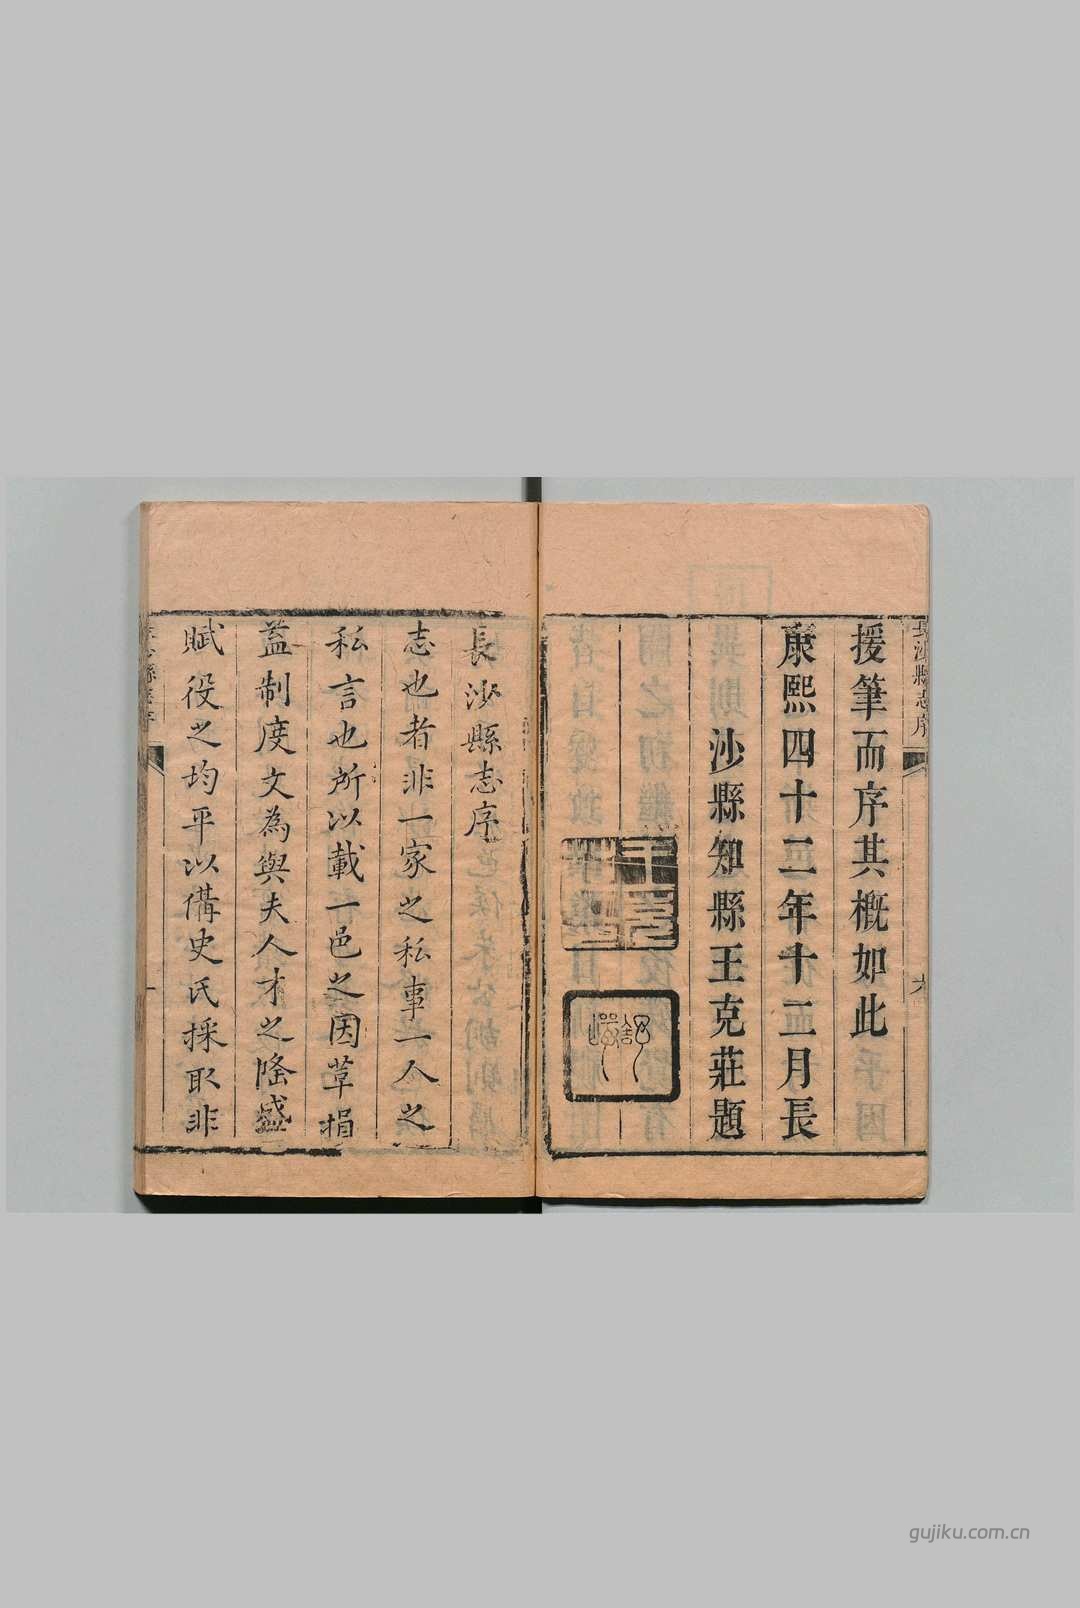 長沙縣志序
援筆而序其概如此
康熙四十二年十二月長
沙縣知縣王克莊題
長沙縣志序
志也者非一家之私事一人之
私言也所以載一邑之因革損
益制度文為與夫人才之隆盛
賦役之均平以備史氏採取非
gujiku.com.cn